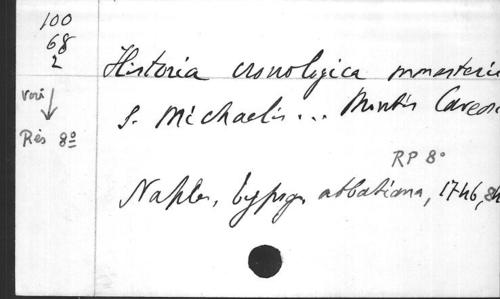 100
68
2
Historia cronologica monasterii
voir
S. Michaelis... Montis Caveosi
Rés 8º
RP 8º
Naples, typogr. abbatiana, 1746, 8º